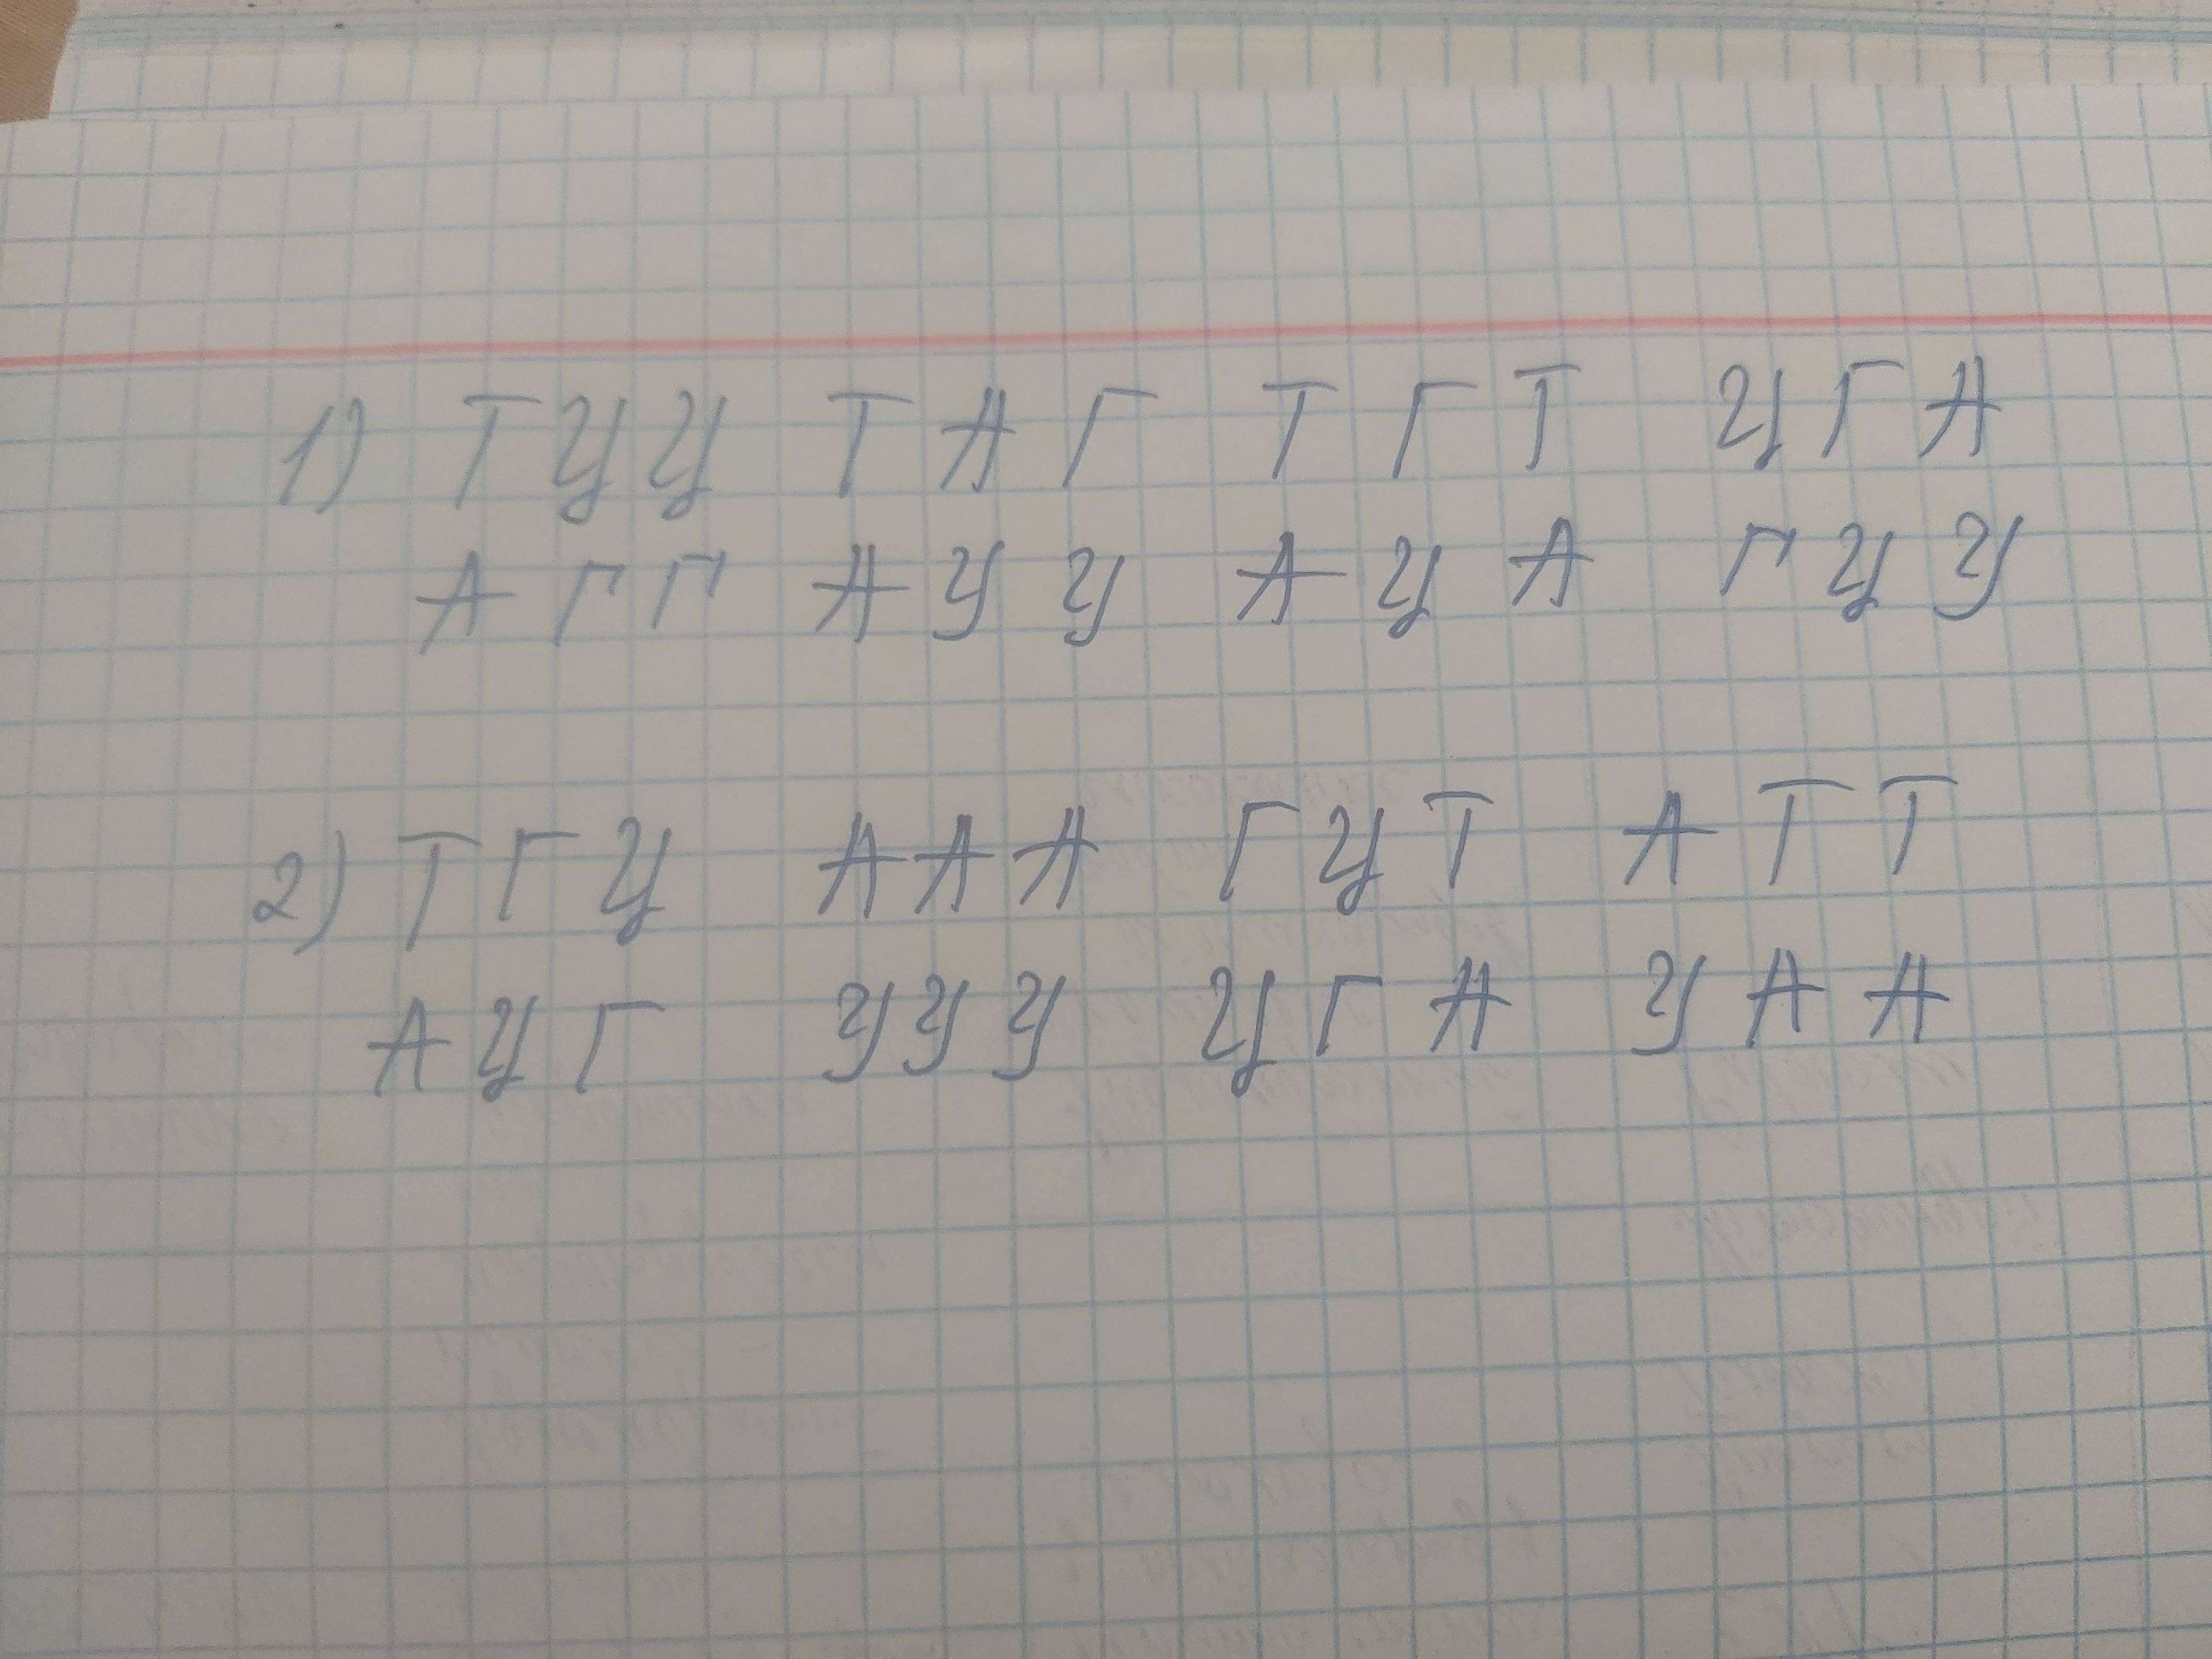 1) ТЦЦ ТАГ ТГТ ЦГА
АГГ АУЦ АЦА ГЦУ
2) ТГЦ ААА ГЦТ АТТ
АЦГ УУУ ЦГА УАА